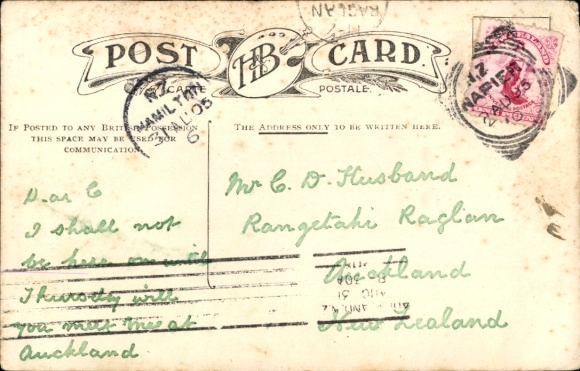 RAGLAN
POST HB CARD.
CARTE POSTALE
N.Z.
HAMILTON
31 AU 05
6
N.Z
NAPIER
AU 05
IF POSTED TO ANY BRITISH POSSESSION
THIS SPACE MAY BE USED FOR
COMMUNICATION.
THE ADDRESS ONLY TO BE WRITTEN HERE.
Dear C
I shall not
be here until
Thursday will
you meet me at
Auckland
Mr C. D. Husband
Rangetahi Raglan
Auckland
New Zealand
AUG 31
8 30A